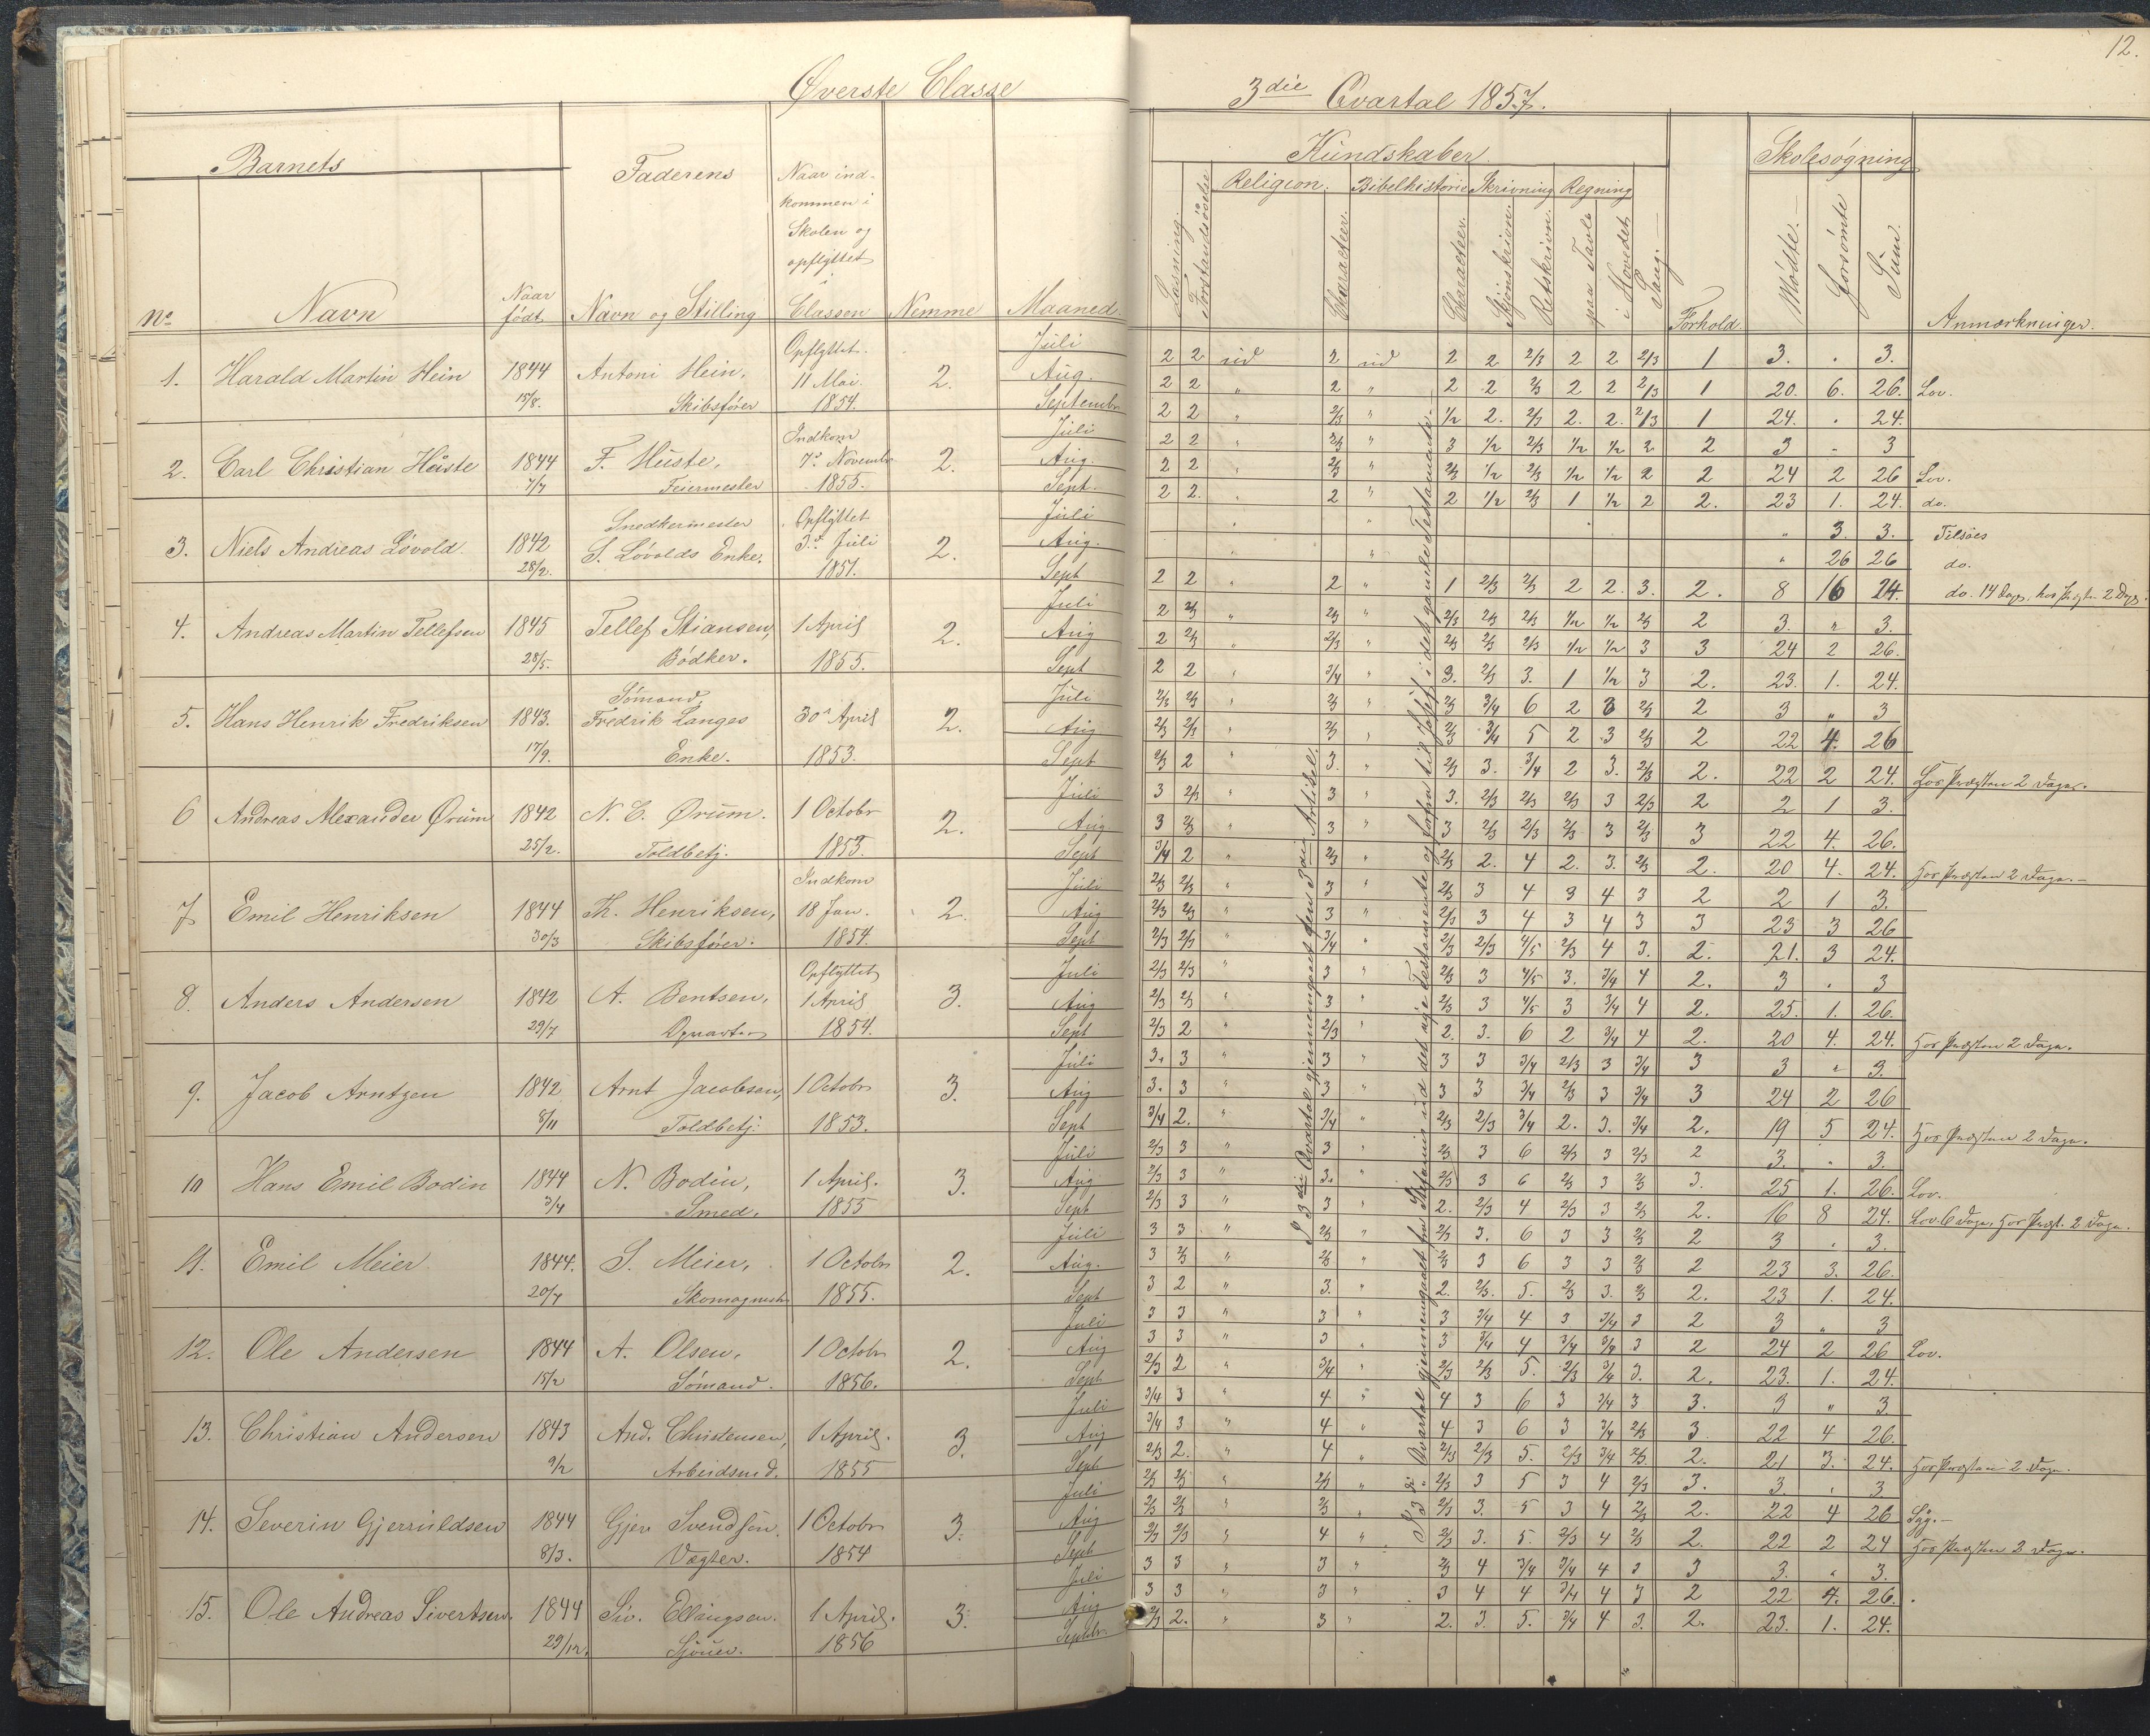 Øverste Classe
Barnets
Faderens
Naar ind-
kommen i
Skolen og
opflyttet
i
No Navn Naar født Navn og Stilling Classen Nemme Maaned.
1. Harald Martin Hein 1844 15/8. Antoni Hein, Skibsfører Opflyttet. 11 Mai. 1854. 2. Juli Aug. Septembr
2. Carl Christian Hüste 1844 7/7 F. Hüste, Feiermester Indkom 7de Novembr 1855. 2. Juli Aug. Sept.
3. Niels Andreas Løvold 1842 28/2. Snedkermester S. Løvolds Enke. Opflyttet 3die Juli 1851. 2. Juli Aug. Sept
4. Andreas Martin Tellefsen 1845 28/5. Tellef Stiansen, Bødker. 1 April 1855. 2. Juli Aug Sept
5. Hans Henrik Fredriksen 1843. 17/9. Sømand Fredrik Langes Enke. 30 April 1853. 2. Juli Aug Sept
6 Andreas Alexander Ørum 1842 25/2. N. C. Ørum. Toldbetj. 1 Octobr 1853. 2. Juli Aug Sept
7 Emil Henriksen 1844 30/3 Th. Henriksen, Skibsfører. Indkom 18 Jan. 1854. 2. Juli Aug Sept
8. Anders Andersen 1842 29/7 A. Bentsen, Opflyttet 1 April 1854. 3. Juli Aug Sept
9. Jacob Arntzen 1842 8/11 Arnt Jacobsen, Toldbetj: 1 Octobr 1853. 3. Juli Aug Sept
10 Hans Emil Bodin 1844 3/4 N. Bodin, Smed. 1 April. 1855 3. Juli Aug Sept
11. Emil Meier 1844. 20/4 S. Meier, 1 Octobr 1855. 2. Juli Aug. Sept
12. Ole Andersen 1844 15/2 A. Olsen, Sømand. 1 Octobr 1856. 2. Juli Aug Sept
13. Christian Andersen 1843 9/2 And. Christensen, Arbeidsmd. 1 April. 1855 3. Juli Aug Sept
14. Severin Gjeruldsen 1844 8/3. Gjer Svendsen. Vægter. 1 Octobr 1854 3. Juli Aug Sept
15. Ole Andreas Sivertsen. 1844 29/12. Siv. Ellingsen. 1 April. 1856 3. Juli Aug Septbr.
12.
3die Qvartal 1857.
Kundskaber
Skolesøgning
Religion. Bibelhistorie Skrivning Regning
Læsning. Forstandsøvelse Characteer. Characteer. Skjønskrivn. Retskrivn. paa Tavle i Hovedet Sang. Forhold Mødte. Forsømte Sum. Anmærkninger.
2 2 ud 2 ud 2 2 2/3 2 2 2/3 1 3. . 3.
2 2 " 2 " 2 2 2/3 2 2 2/3 1 20. 6. 26. Lov.
2 2 " 2/3 " 1/2 2. 2/3 2. 2. 2/3 1 24. . 24.
2 2 " 2/3 " 3 1/2 2/3 1/2 1/2 2 2 3 " 3
2 2 " 2/3 " 2/3 1/2 2/3 1/2 1/2 2 2 24 2 26 Lov.
2 2. " 2 " 2 1/2 2/3 1 1/2 2 2. 23 1. 24. do.
" 3. 3. Tilsøes
" 26 26 do.
2 2 " 2 " 1 2/3 2/3 2 2. 3. 2. 8 16 24. do. 14 Dage, hos Præsten 2 Dage.
2 2/3 " 2/3 " 2/3 2/3 2/3 1/2 1/2 2/3 2 3. " 3.
2 2/3 " 2/3 " 2/3 2/3 2/3 1/2 1/2 3 3 24 2 26.
2 2 " 3/4 " 3. 2/3 3. 1 1/2 3 2. 23. 1. 24.
2/3 2/3 " 2/3 " 2/3 3/4 6 2 3 2/3 2 3 " 3
2/3 2/3 " 2/3 " 2/3 3/4 5 2 3 2/3 2 22 4. 26
2/3 2 " 3. " 2/3 3. 3/4 2 3. 2/3 2. 22 2 24. Hos Præsten 2 Dage.
3 2/3 " 3 " 3. 2/3 2/3 2/3 3 2/3 2 2 1 3.
3 2/3 " 3 " 3 2/3 2/3 2/3 3 2/3 3 22 4. 26.
3/4 2 " 2/3 " 2/3 2. 4 2. 3. 2/3 2. 20 4. 24. Hos Præsten 2 Dage.
2/3 2/3 " 3 " 2/3 3 4 3 4 3 2 2 1 3.
2/3 2/3 " 3 " 2/3 3 4 3 4 3 3 23 3 26
2/3 2/3 " 3/4 " 2/3 2/3 4/5 2/3 4 3. 2. 21. 3 24.
2/3 2/3 " 3 " 2/3 3 4/5 3. 3/4 4 2. 3 . 3
2/3 2/3 " 3 " 2/3 3 4/5 3 3/4 4 2. 25. 1. 26.
2/3 2 " 2/3 " 2. 3. 6 2 3/4 4 2. 20 4. 24. Hos Præsten 2 Dage.
3. 3 " 3 " 3 3 3/4 2/3 3 3/4 3 3 " 3.
3. 3 " 3 " 3 3 3/4 2/3 3 3/4 3 24 2 26
3/4 2. " 3/4 " 2/3 2/3 3/4 2. 3. 3/4 2. 19 5 24. Hos Præsten 2 Dage.
2/3 3 " 3 " 2/3 3 6 2/3 3 2/3 2 3. . 3.
2/3 3 " 3. " 2/3 3 6 2/3 3 2/3 3. 25 1. 26. Lov.
2/3 3 " 3 " 2. 2/3 4 2/3 3 2/3 2. 16 8 24. Lov. 6 Dage, Hos Præst. 2 Dage.
3 3 " 2/3 " 2/3 3. 6 3 3 2/3 2 3 . 3.
3 2/3 " 2/3 " 2/3 3 6 3 3 2/3 2 23 3. 26.
3 2 " 3. " 2. 2/3. 5. 2/3 3. 2/3 2. 23 1. 24.
3 3 " 3 " 3 3/4 4 3 3/4 3 2 3 " 3
3 3 " 3 " 3 3/4 4 3/4 3/4 3 2 24 2 26 Lov.
2/3 2 " 3/4 " 2/3 2/3 5. 2/3 3/4 3. 2. 23. 1. 24.
3/4 3 " 4 " 4 3 6 3 3/4 3 3. 3 " 3
3/4 3 " 4 " 4 3 6 3 3/4 2/3 3 22 4 26.
2/3 2. " 4 " 2/3 2/3 5. 2/3 3/4 2/3 2. 21 3. 24. Hos Præsten 2 Dage.
2/3 2/3 " 2/3 " 2/3 3 5 3 4 2/3 3. 3 . 3
2/3 2/3 " 2/3 " 2/3 3. 5 3 4 2/3 2. 22 4 26 Syg.
2/3 2/3 " 4 " 2/3 3. 5. 2/3 4 2/3 2. 22 2 24 Hos Præsten 2 Dage.
3 3 " 3 " 2/3 4 3/4 3/4 4 3 3 3. . 3.
3 3 " 3 " 3 4 4 3/4 4 3 2 22 4. 26.
2/3 2. " 3 " 2. 3. 5. 3/4 4 3. 2. 23. 1. 24.
I 3die Qvartal gjennemgaaet den 3die Artikel.
I 3die Qvartal gjennemgaaet fra Stefanus ud det nye Testamente og forfra til Josef i det gamle Testamente.